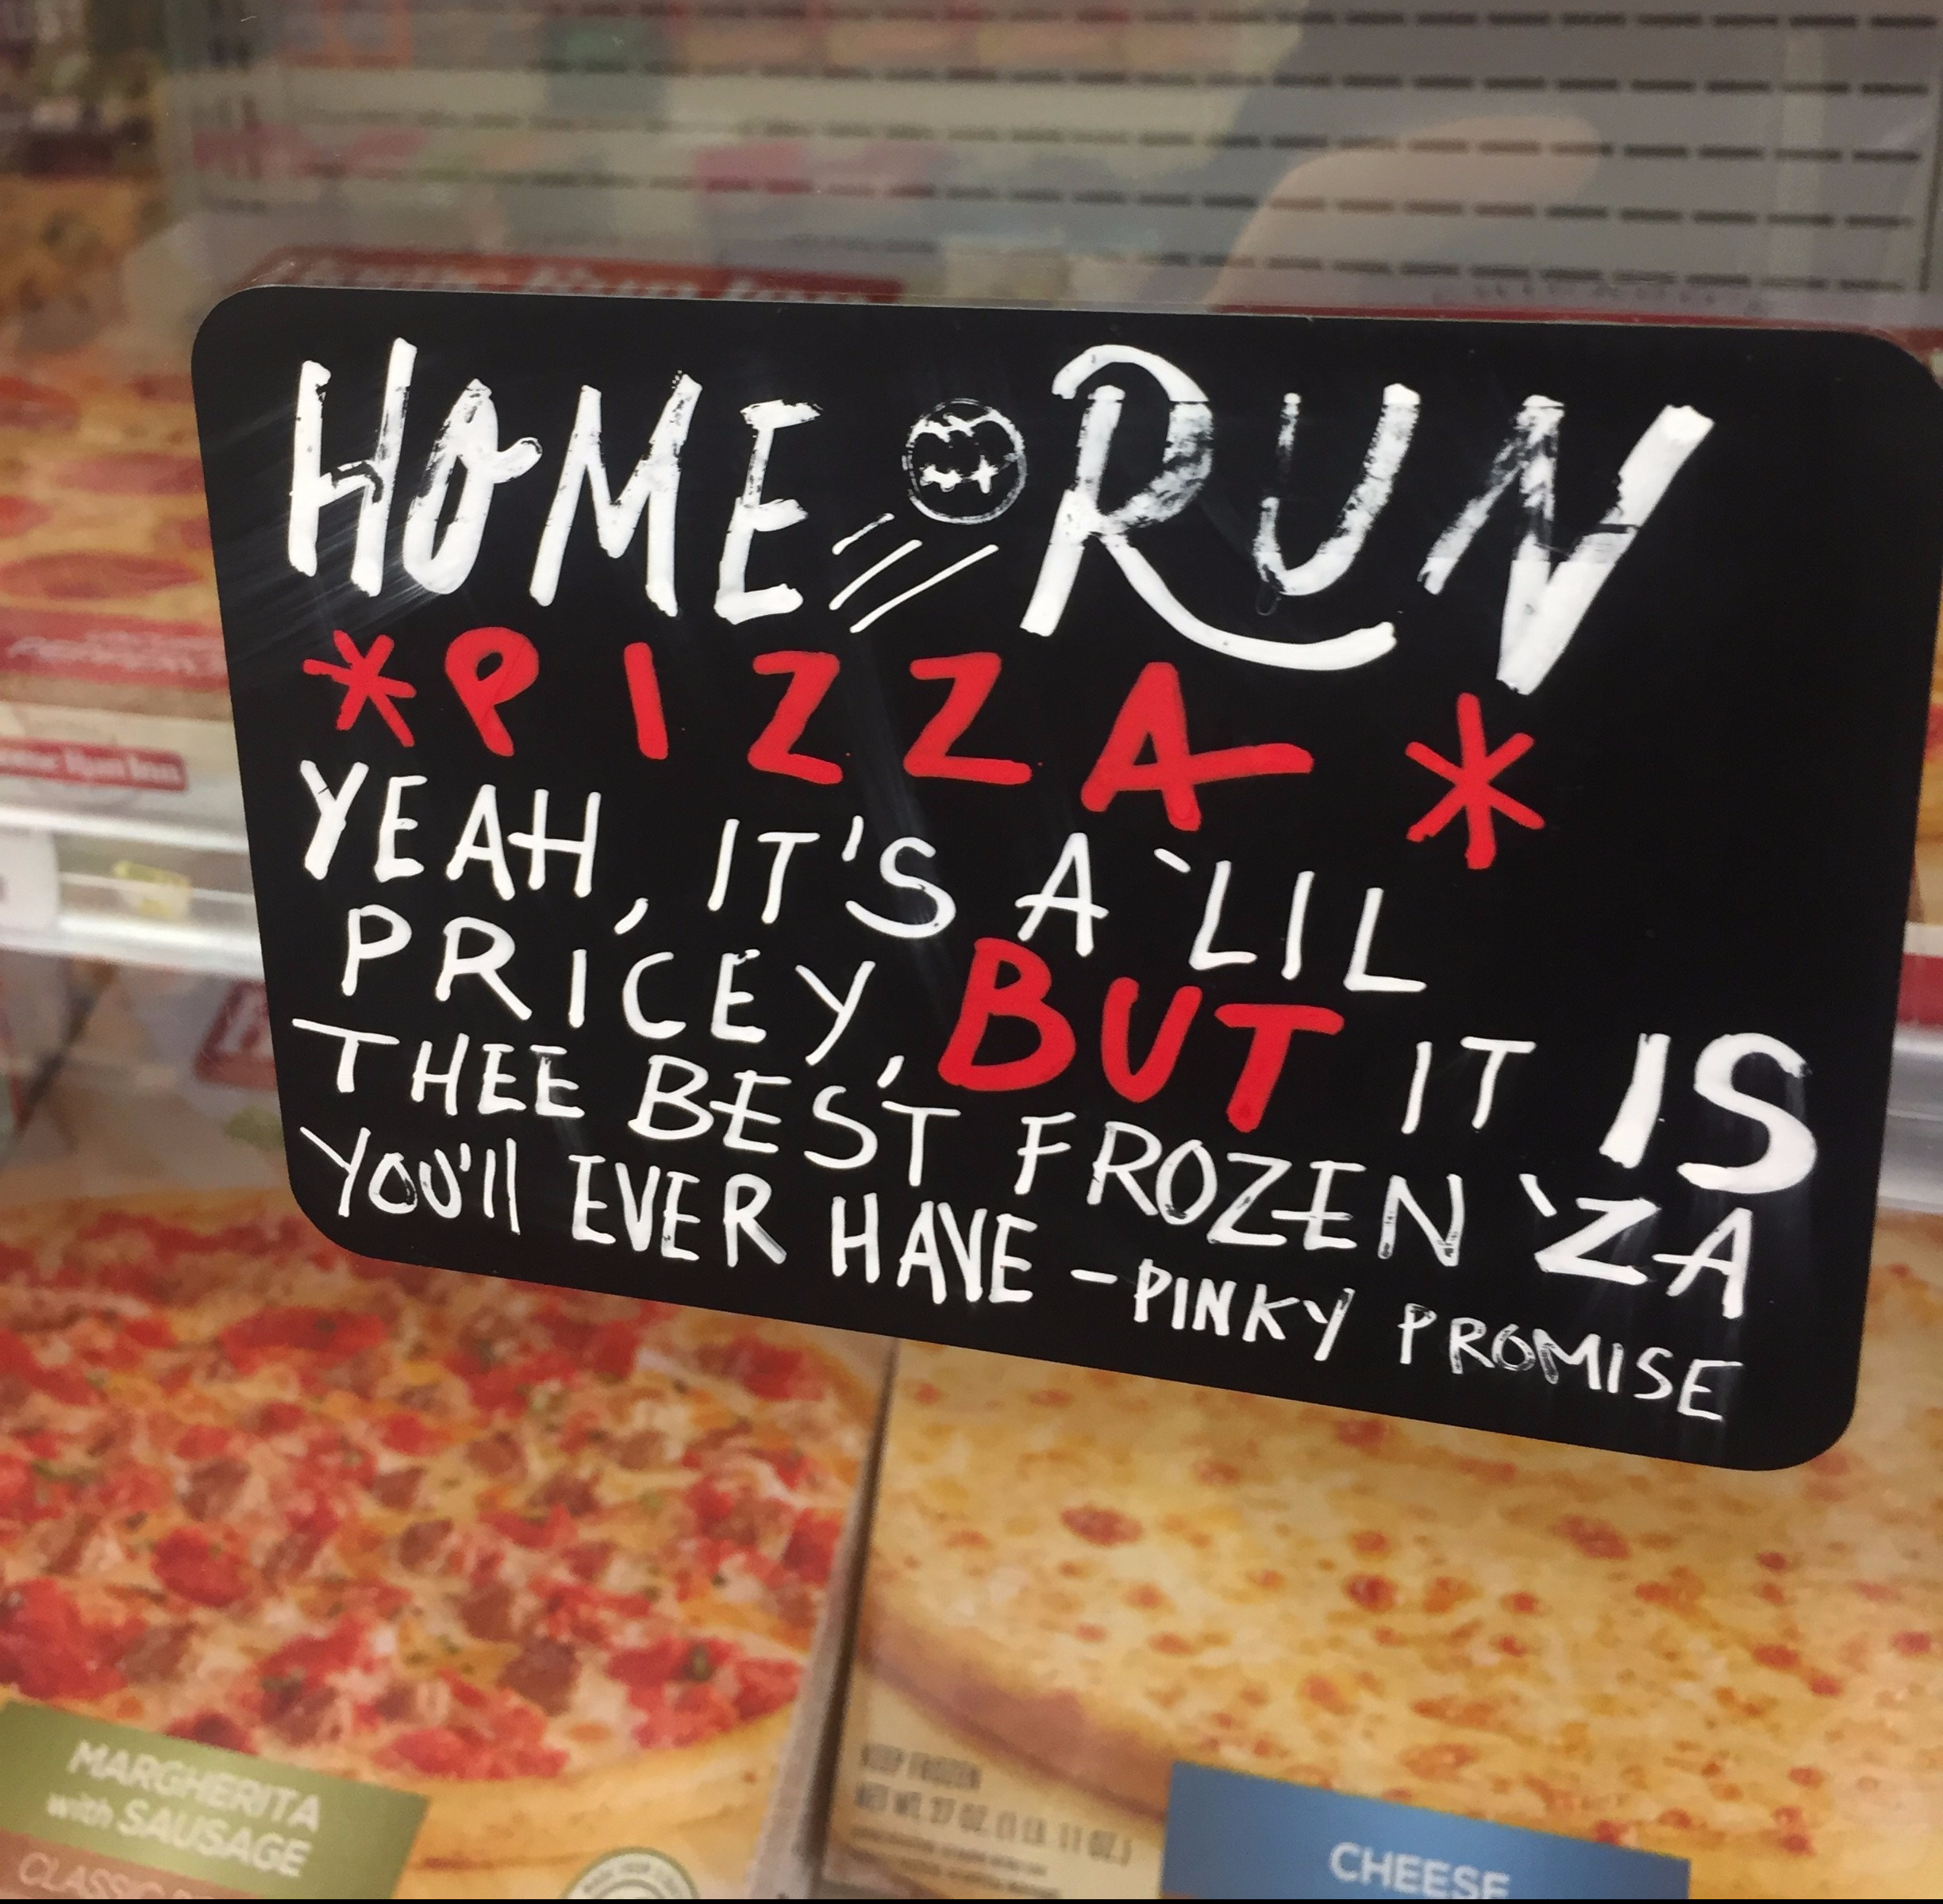 HOME RUN
*PIZZA*
YEAH, IT'S A `LIL
PRICEY, BUT IT IS
THEE BEST FROZEN `ZA
YOU'll EVER HAVE -PINKY PROMISE
MARGHERITA
with SAUSAGE
KEEP FROZEN
NET WT. 27 OZ. (1 LB. 11 OZ.)
CHEESE